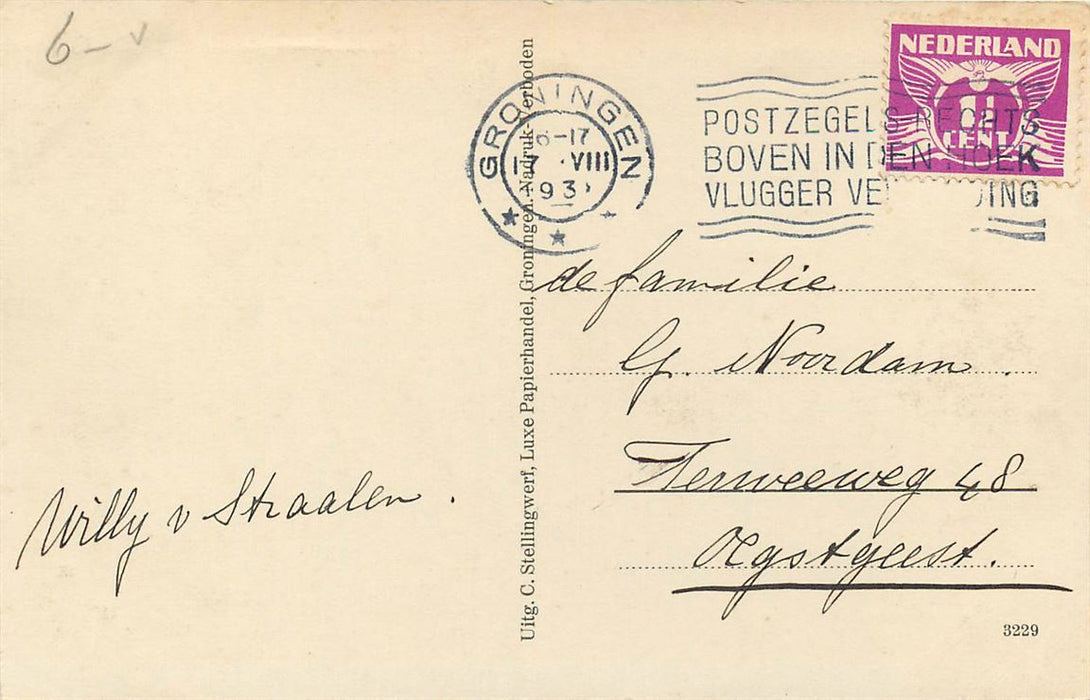 6 - v
NEDERLAND
1½
CENT
GRONINGEN
6-17
17 · VIII
193
POSTZEGELS RECHTS
BOVEN IN DEN HOEK
VLUGGER VE ING
de familie
G. Noordam.
Terweeweg 48
Oegstgeest.
Willy v Straalen.
Uitg. C. Stellingwerf, Luxe Papierhandel, Groningen. Nadruk Verboden
3229